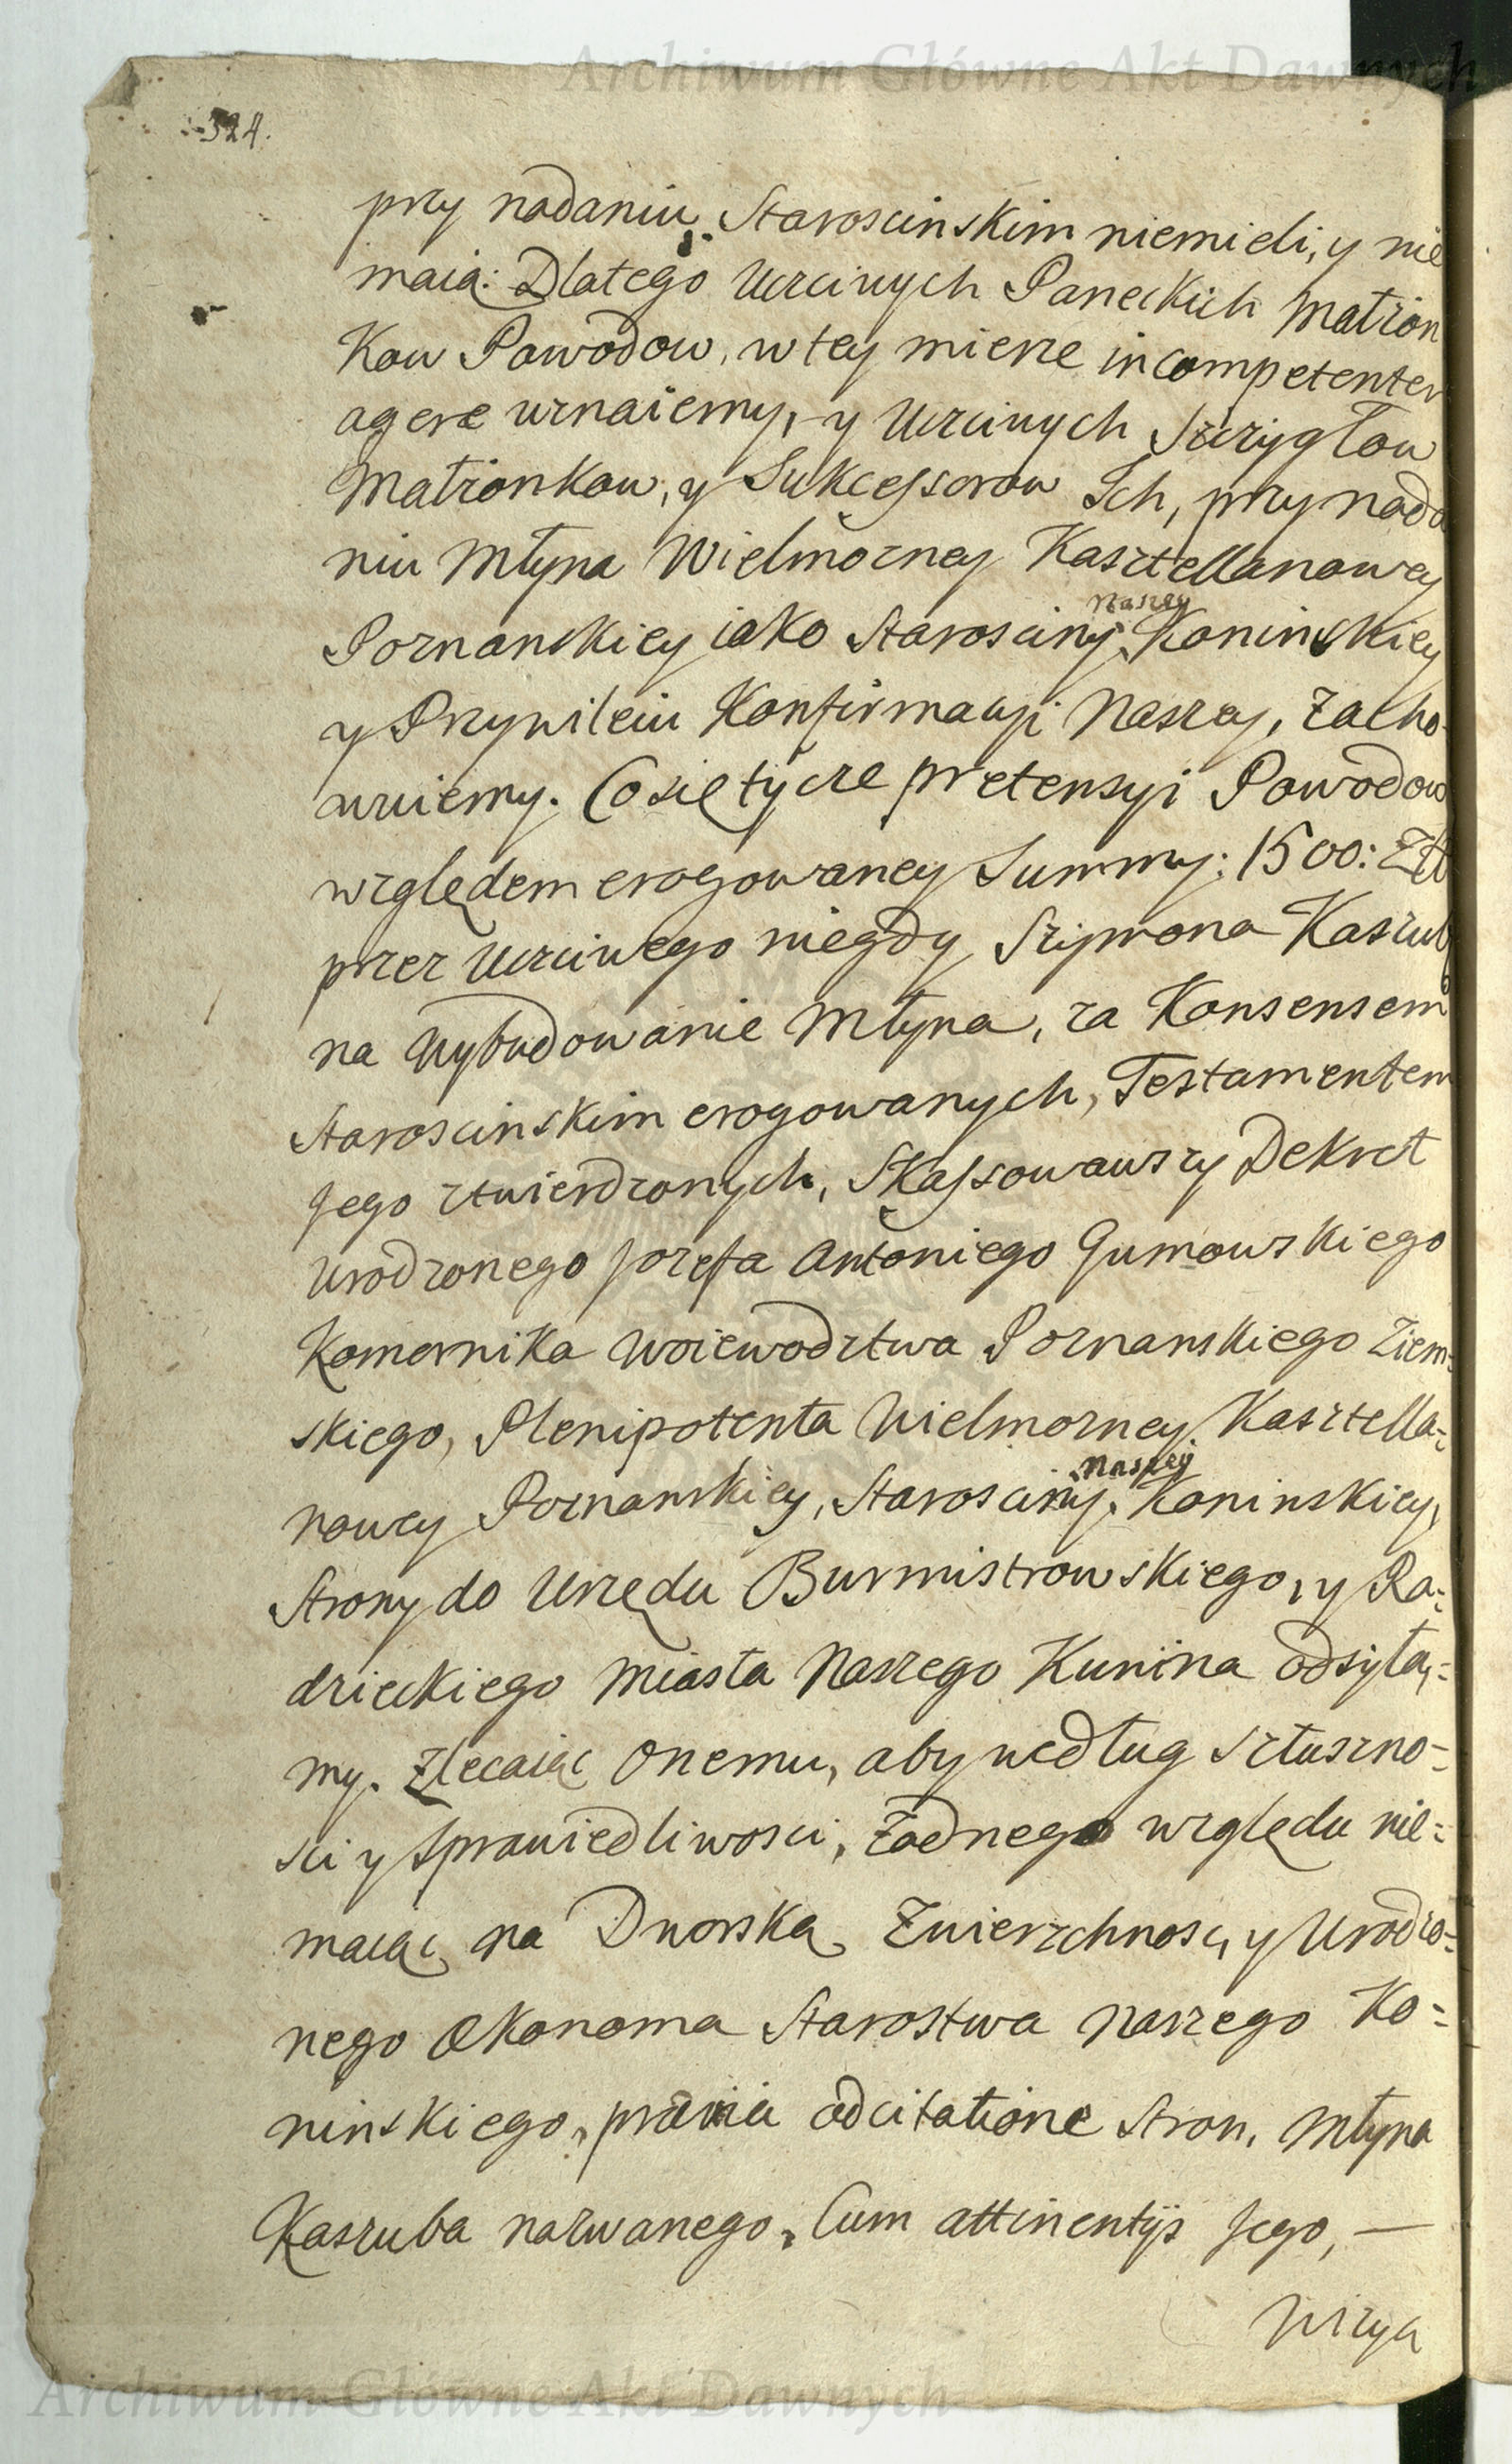 Archiwum Główne Akt Dawnych
324.
przy nadaniu Staroscinskim niemieli, y nie
maią: Dlatego Uczciwych Paneckich Matżon
kow Powodow, w tey mierze incompetenter
agere uznaiemy, y Uczciwych Szczygłow
Małżonkow, y Sukcessorow Ich, przy nada
niu Młyna Wielmożney Kasztellanowey
Naszey
Poznanskiey iako Starosciny Koninskiey
y Przywileiu Konfirmacyi Naszey, zacho-
wuiemy. Co się tycze pretensyi Powodow
względem erogowaney Summy: 1500: Zł
przez Uczciwego niegdy Szymona Kaszub
na wybudowanie Młyna, za Konsensem
Staroscinskim erogowanych, Testamentem
Jego ztwierdzonych, Skassowawszy Dekret
Urodzonego Jozefa Antoniego Gumowskiego
Komornika Woiewodztwa Poznanskiego Ziem-
skiego, Plenipotenta Wielmożney Kasztella-
Naszey
nowey Poznanskiey, Starosciny Koninskiey,
Strony do Urzędu Burmistrowskiego, y Ra-
dzieckiego Miasta Naszego Kunina odsyła-
my. Zlecaiąc onemu, aby według Słuszno-
sci y Sprawiedliwosci, żadnego względu nie-
maiąc na Dworską Zwierzchnosc, y Urodzo-
nego Okonoma Starostwa Naszego Ko-
ninskiego, prævia adcitatione Stron, Młyna
Kaszuba nazwanego, Cum attinentijs Jego, —
Archiwum Główne Akt Dawnych